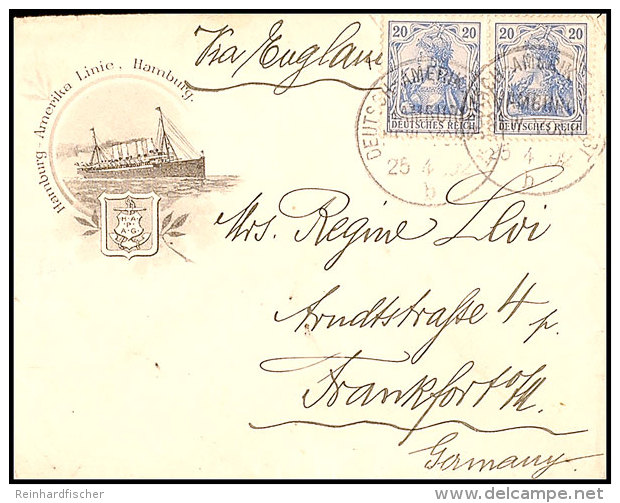 Via England
20 20 20 20
DEUTSCHES REICH DEUTSCHES REICH
DEUTSCH-AMERIK.
25 4
b
25 4
b
Hamburg-Amerika Linie, Hamburg.
H.A.
P.
A.G.
Mrs. Regine Levi
Arndtstraße 4 p.
Frankfort o/M.
Germany.
© Reinhardfischer
delcampe.net